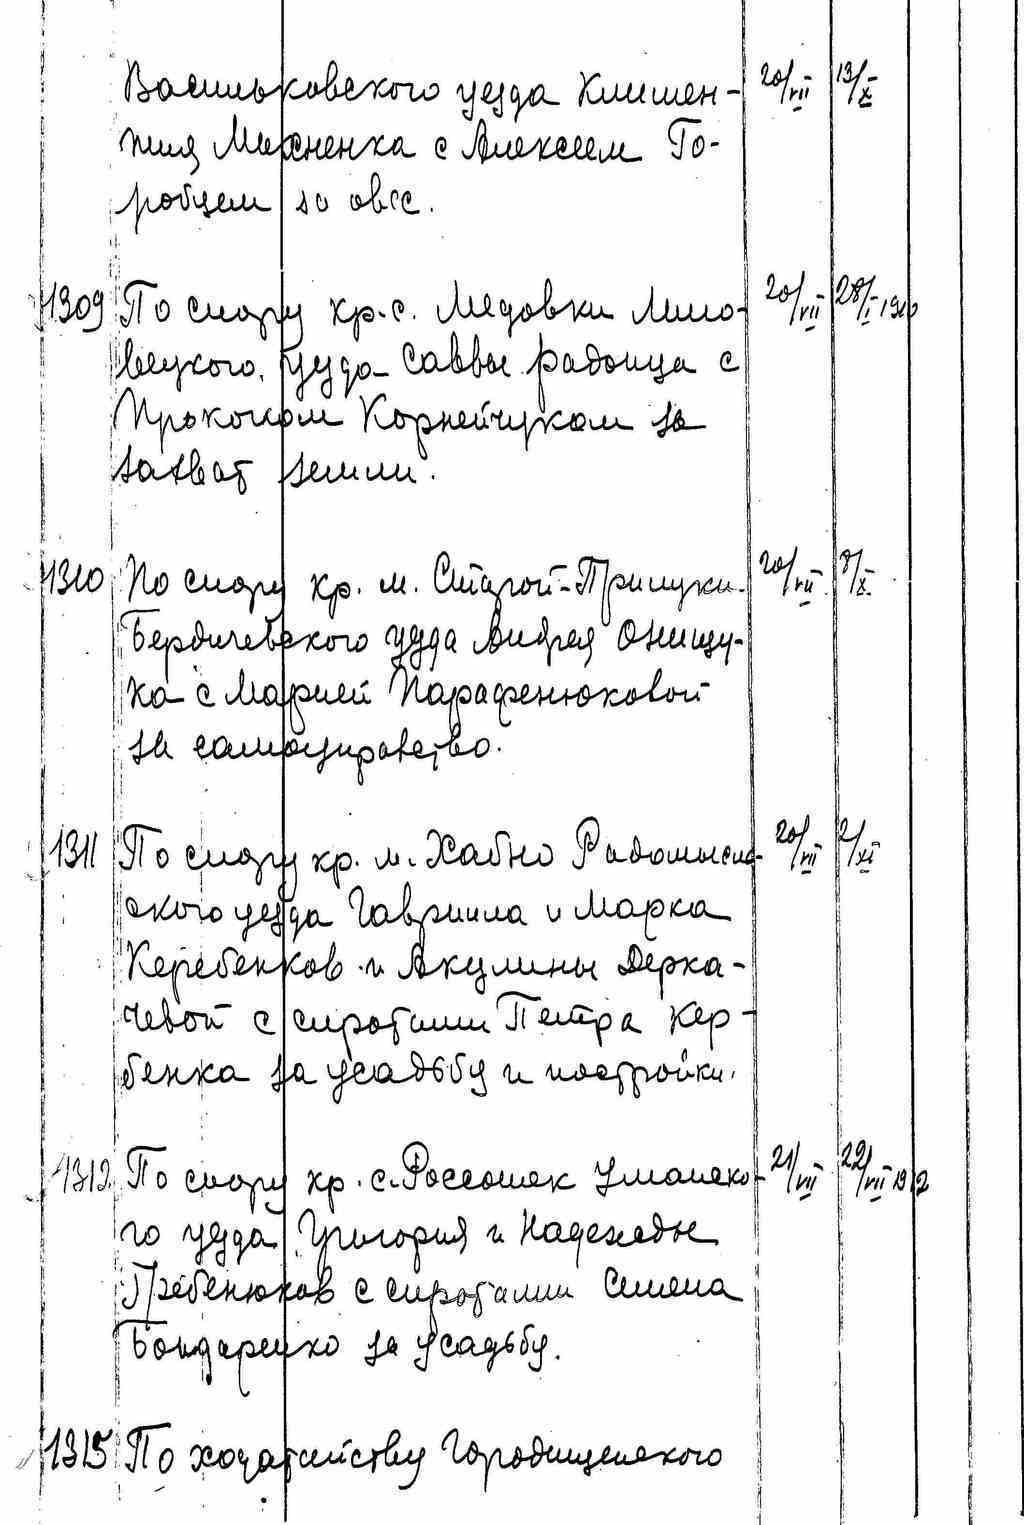 Васильковского уезда Климен- 20/VII 13/X
тия Михненка с Алексеем Го-
робцем за овес.
1309 По спору кр. с. Медовки Липо- 20/VII 28/I 1910
вецкого, уезда Саввы Радоица с
Прокопом Корнейчуком за
захват земли.
1310 По спору кр. м. Старой-Прилуки 20/VII 8/X
Бердичевского уезда Андрея Онищу-
ка с Марией Парафенюковой
за самоуправство.
1311 По спору кр. м. Хабно Радомысль- 20/VII 2/XI
ского уезда Гавриила и Марка
Керебенков и Акулины Дерка-
чевой с сиротами Петра Кер-
бенка за усадьбу и постройки.
1312 По спору кр. с. Россошек Уманско- 21/VII 22/VII 1912
го уезда Григория и Надежды
Гребенюков с сиротами Семена
Бондаренко за усадьбу.
1315 По ходатайству Городищенского